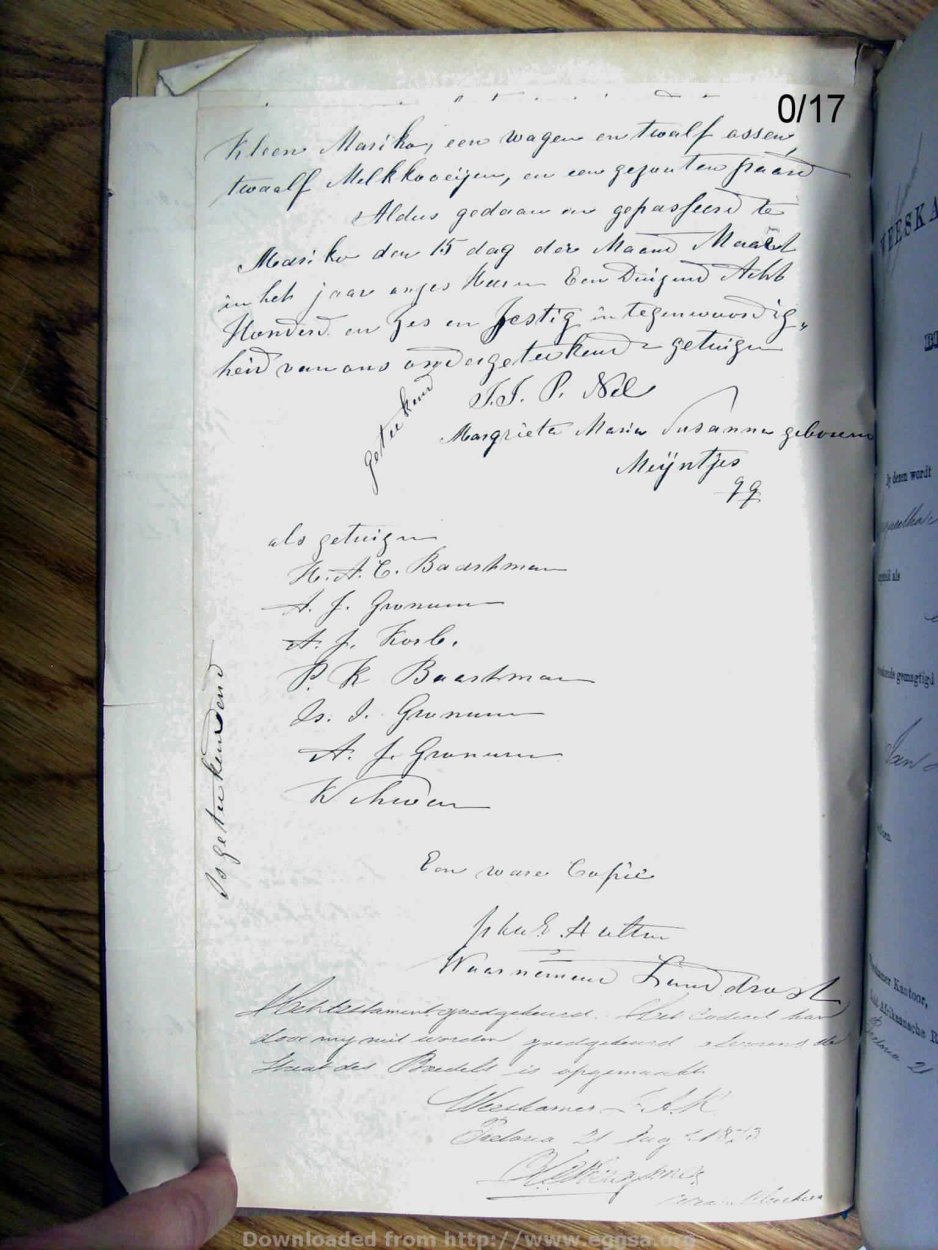 0/17
Kleen Mariko, een wagen en twalf ossen,
twaalf Melkkoeijen, en een gezouten paard
Aldus gedaan en gepasseerd te
Mariko den 15 dag der Maand Maart
in het jaar onzes Heeren Een Duizend Acht
Honderd en Zes en Zestig in tegenwoordig„
heid van ons ondergeteekende getuigen
geteekend
J.J. P. Nel
Margrieta Maria Susanna geboren
Meijntjes
qq
als getuigen
H. A. C. Baashman
A. J. Gronum
A. J. Korb.
P. K Baashman
Is. J. Gronum
A. J. Gronum
Is geteekend
Een ware Copie
Waarnemend Landdrost
Het testament goedgekeurd. Het Codicil kan
door my niet worden goedgekeurd alvorens de
Staat des Boedels is opgemaakt
Weeskamer Z.A.R.
Pretoria 21 Aug 1873
WEESKA
By dezen wordt
gemagtigd
Kantoor,
Afrikaansche R
Pretoria 21
Downloaded from http://www.eggsa.org